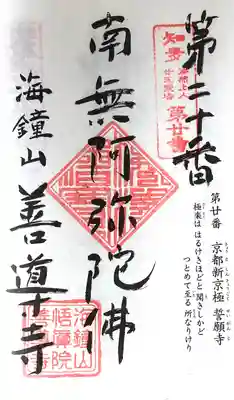 第二十番
南無阿弥陀佛
海鐘山 善導寺
知多
第廿番
第廿番 京都新京極 誓願寺
極楽は はるけきほどと 聞きしかど
つとめて至る 所なりけり
海鐘山
悟真院
善導寺